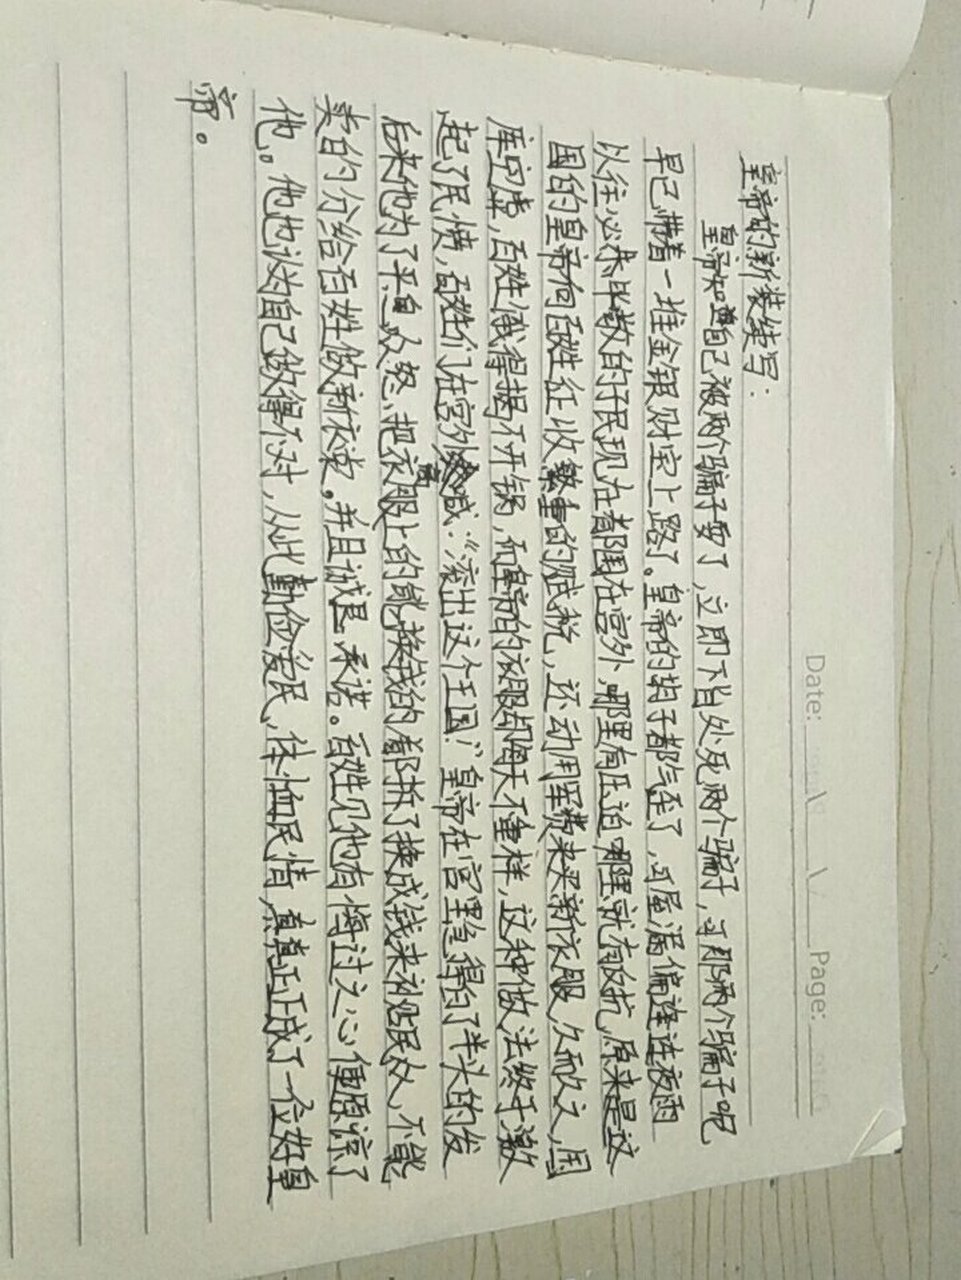 Date: Page:
皇帝的新装续写：
皇帝知道自己被两个骗子耍了，立即下旨处死两个骗子，可那两个骗子呢
早已带着一堆金银财宝上路了。皇帝的胡子都气歪了，可屋漏偏逢连夜雨
以往必恭毕敬的子民现在都围在宫外，哪里有压迫哪里就有反抗，原来是这
国的皇帝向百姓征收繁重的赋税，还动用军费来买新衣服，久而久之，国
库空虚，百姓饿得揭不开锅，而皇帝的衣服却每天不重样，这种做法终于激
起了民愤，百姓们在宫外高喊：“滚出这个王国！”皇帝在宫里急得白了半头的发
后来他为了平息众怒，把衣服上的能换钱的都拆了换成钱来补贴民众，不能
卖的分给百姓做新衣裳，并且诚恳承诺。百姓见他有悔过之心便原谅了
他。他也认为自己做得不对，从此勤俭爱民，体恤民情，真真正正成了一位好皇
帝。